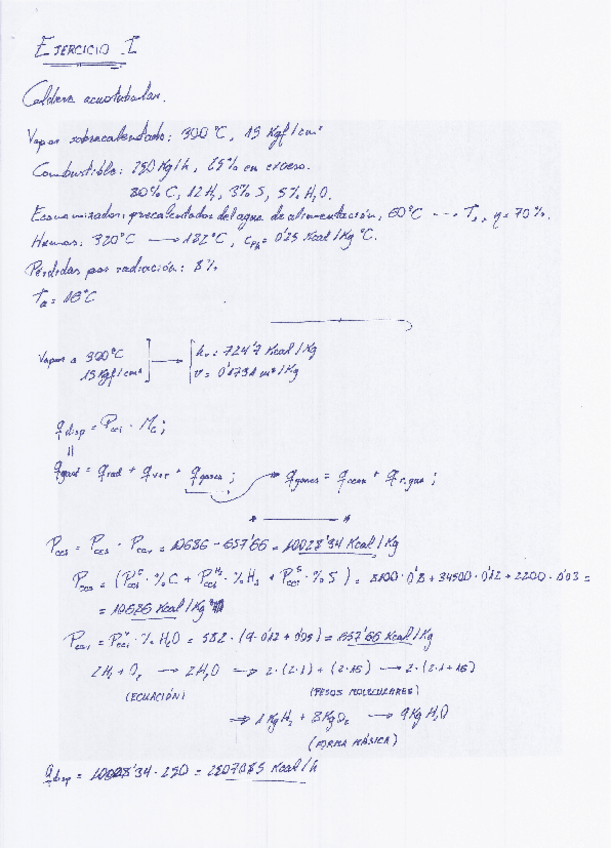 EJERCICIO I
Caldera acuotubular.
Vapor sobrecalentado: 300 °C, 15 Kgf/cm²
Combustible: 250 Kg/h, 25% en exceso.
80% C, 12 H₂, 3% S, 5% H₂O.
Economizador: precalentador del agua de alimentación, 60 °C --- Tₛ, η = 70%.
Humos: 320 °C → 182 °C, Cₚₕ = 0'25 Kcal/Kg °C.
Pérdidas por radiación: 8%
Tₐ = 18 °C
Vapor a 300 °C → hᵥ = 724'7 Kcal/Kg
15 Kgf/cm² v = 0'1731 m³/Kg
q disp = Pcci · Mc;
||
q gend = q rad + q vap + q gases; → q gases = q econ + q r.gas;
Pcci = Pccs - Pccv = 10686 - 657'66 = 10028'34 Kcal/Kg
Pccs = (Pccs^C · %C + Pccs^H₂ · %H₂ + Pccs^S · %S) = 8100 · 0'8 + 34500 · 0'12 + 2200 · 0'03 =
= 10686 Kcal/Kg
= 582 · (9 · 0'12 + 0'05) = 657'66 Kcal/Kg
2H₂ + O₂ → 2H₂O → 2·(2·1) + (2·16) → 2·(2·1+16)
(ECUACIÓN) (PESOS MOLECULARES)
⇒ 1 Kg H₂ + 8 Kg O₂ → 9 Kg H₂O
(FORMA MÁSICA)
q disp = 10028'34 · 250 = 2507085 Kcal/h